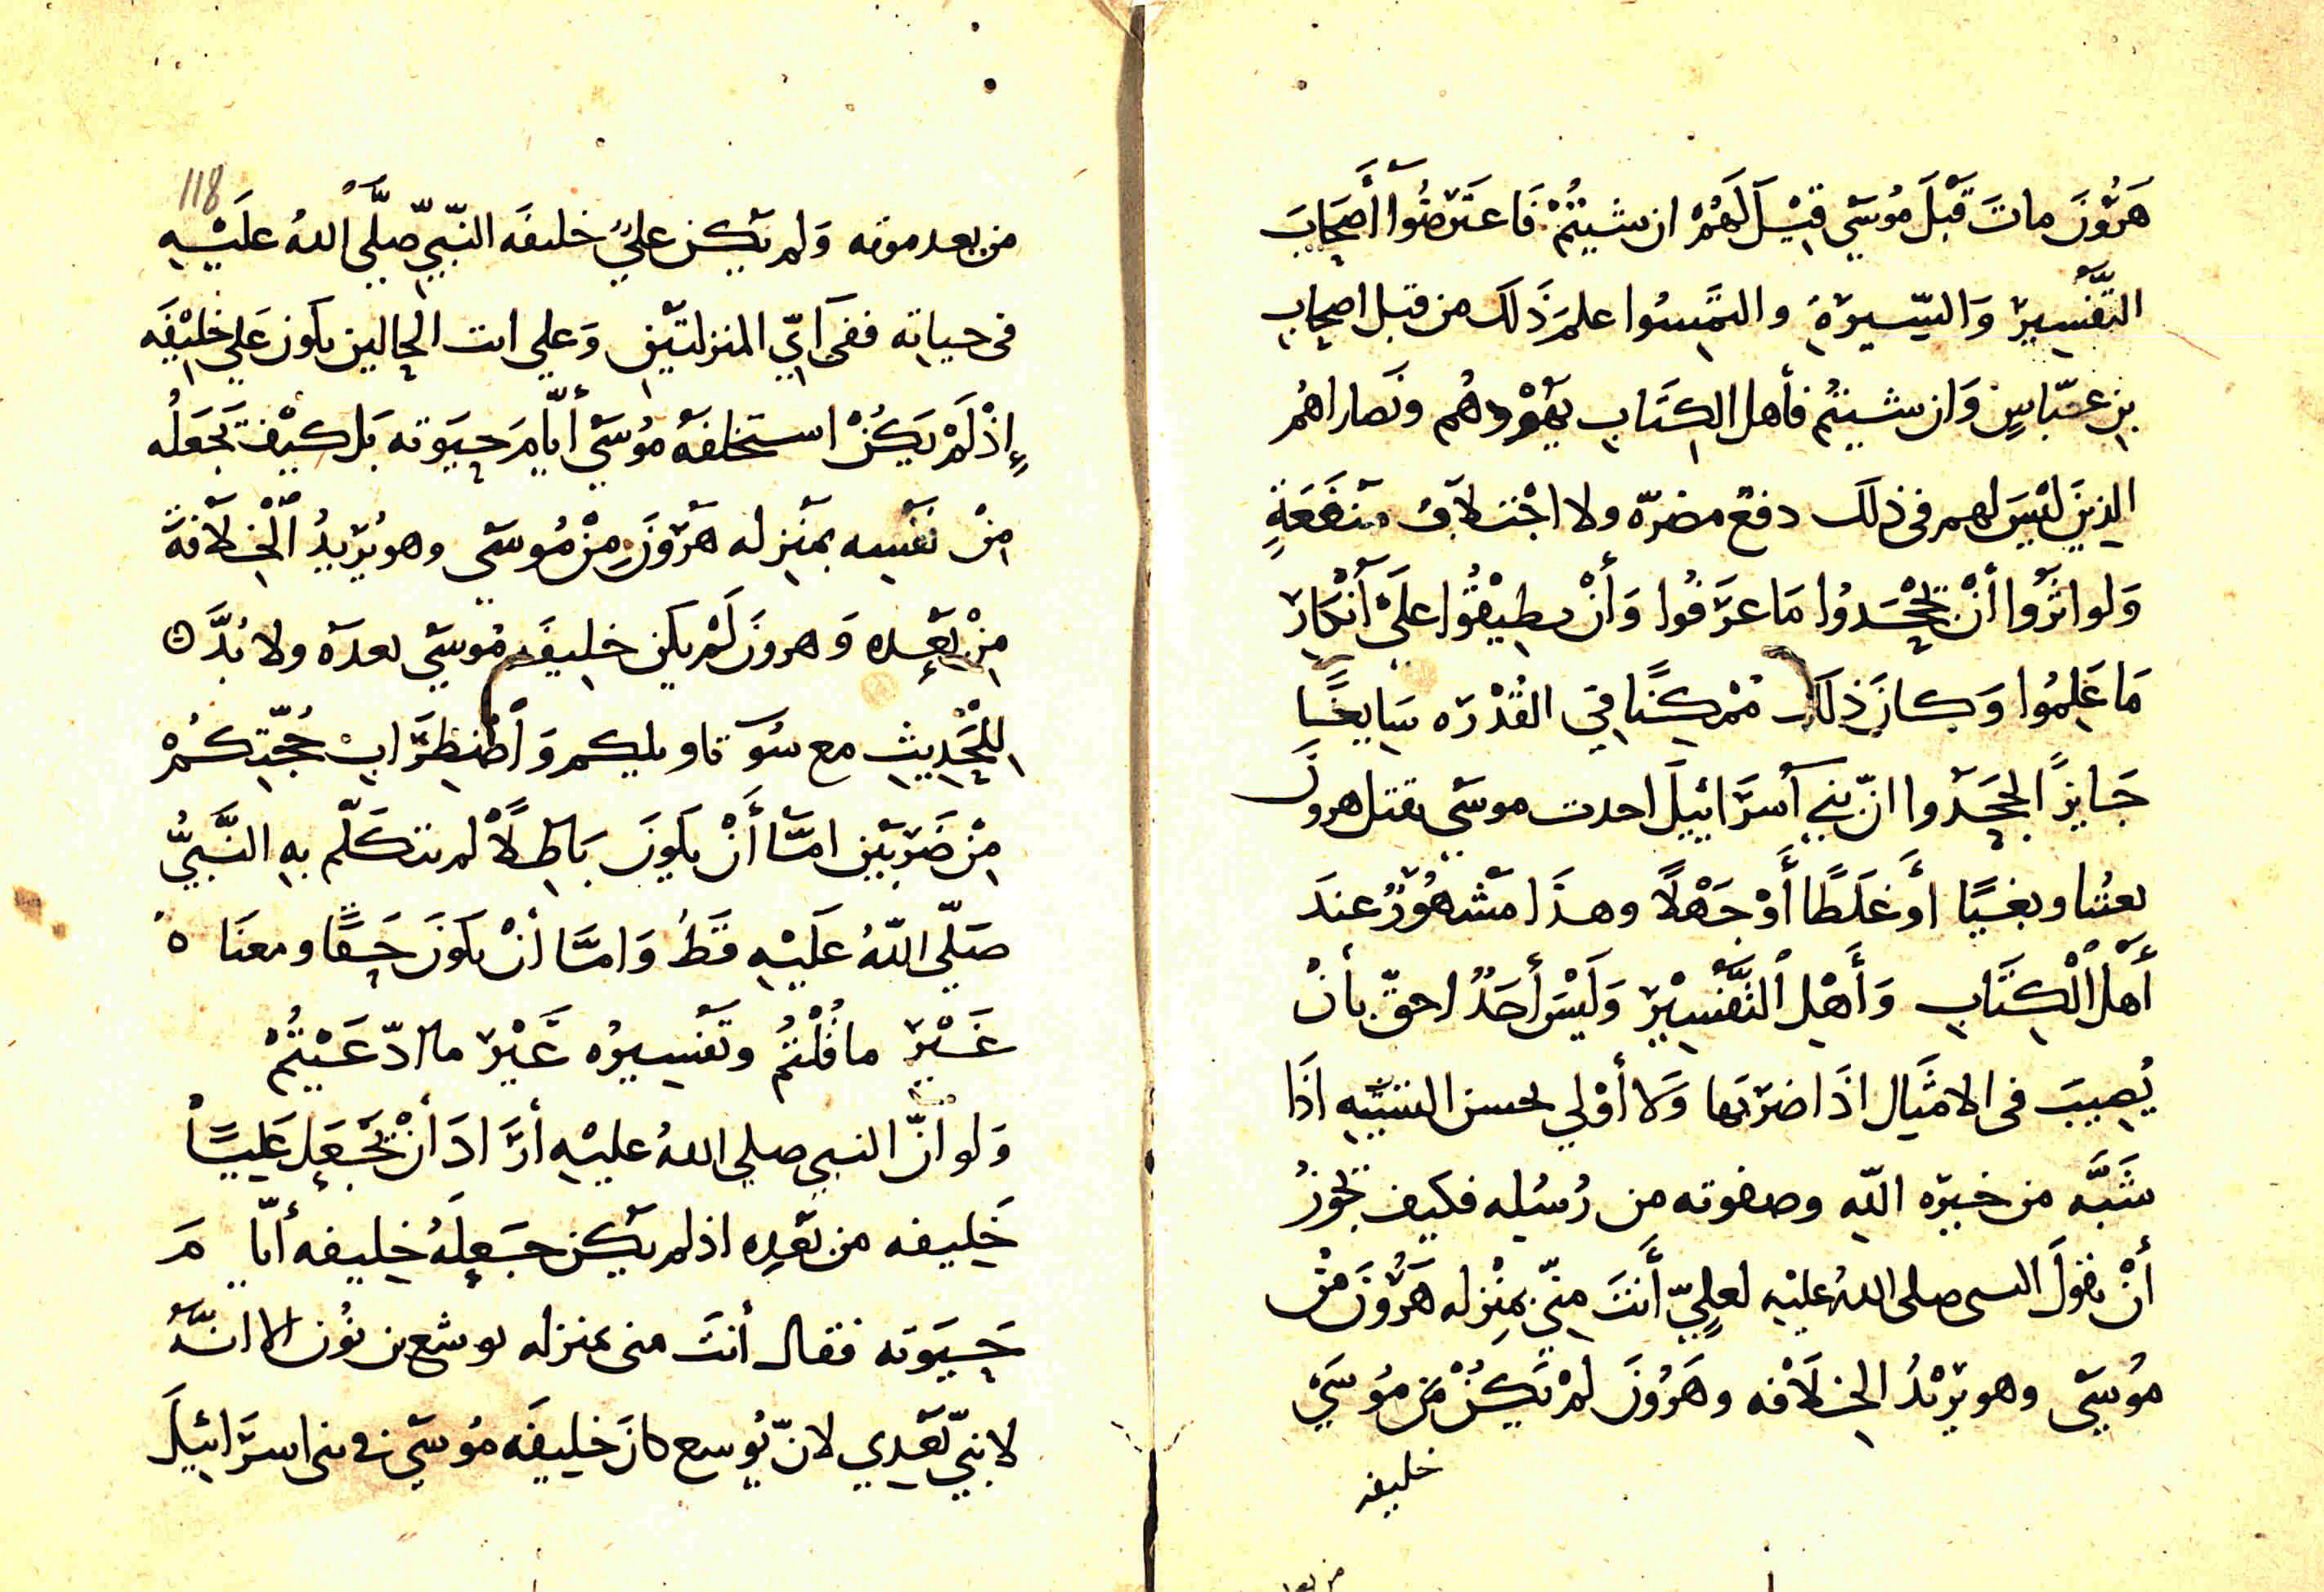 هَرُوْنَ ماتَ قَبْلَ مُوسَي قِيْلَ لَهُمْ ان شيتُمْ فَاعتَرضُوا أَصحَابَ
التَّفْسِيرَ وَالسِّيرَةِ والتمِسُوا علمَ ذَلكَ من قبل اصحاب
بن عبّاسٍ وَان شيتُم فأهل الكتَاب يَهُوْدهُم ونَصاراهُم
الذِينَ ليْسَ لهم فى ذلكَ دفعْ مضرّه ولا اجْتلابُ منفَعَةٍ
وَلو اثَرُوا أنْ تجْحَدُوا مَا عرَفُوا وَأنْ يطِيْقُوا علَيْ أنْكَارَ
مَا عَلِمُوا وَكانَ ذلكَ مُمْكِنًا فِي القُدْرَه سَايغًا
جَايزًا لجحَدُوا انّ بَنِي أسرَائِيلَ احدت موسَي بقتل هرونَ
بعتُنا وبغيًا أَو غَلَطًا أَوْ جَهْلًا وهذَا مَشْهُوْرٌ عندَ
أهل الْكِتَابِ وَأَهْلِ التَّفْسِيْرِ وَلَيْسَ أحَدٌ احقّ بأنْ
يُصِيبَ فى الامثَال اذَا ضرَبها وَلا أوْلي بحسن التشبِيه اذَا
شَبَّه من خيرَه اللهِ وصفوته من رُسُلِه فكيف يجُوزُ
أنْ يقولَ النبى صلى اللهُ عليْهِ لعلِيّ أَنتَ مِنّي بمنْزله هَرُوْنَ منْ
مُوسَي وهو يَرِيْدُ الخلَافه وهَرُوْنَ لمْ يَكُنْ مِن مُوسَيْ
خليفه
من بعد موته وَلم يَكن عليٌ خليفَه النّبيّ صلّي اللهُ عَلَيْهِ
فى حياته ففى ايّ المنزلتَيْنِ وَعلي ايت الحالين يكون عَلي خَلِيْفَه
إِذْ لَمْ يَكُنْ استخلفَهُ مُوسَيْ أيّامَ حيَوته بَل كيْفَ يَجعَلُه
مِنْ نَفْسِه بمَنزله هَرُوْنَ مِنْ مُوسَي وهو يُرِيدُ الْخِلَافَةَ
مِنْ بَعْدِه وَهرونَ لَمْ يكن خليفَه مُوسَي بعدَه ولا بُدَّ
للْحَدِيثِ مع سُو تاويلكم وَاضْطِرَابِ حُجّتكُمْ
مِنْ ضَرْبَيْن امَّا أَنْ يكونَ بَاطِلًا لم يتكَلّم بهِ النَّبيُّ
صَلّي اللّهُ عَلَيْهِ قَطُ وَامَّا أنْ يكونَ حَقًا ومعنَاهُ
غَيْرَ ما قُلْتُمْ وتَفْسِيرُه غَيْرَ ما ادّعَيْتُمْ
وَلو انّ النبى صلي اللهُ عليْهِ أرَادَ أنْ يَجْعَلَ عَلِيًا
خَلِيفه من بَعْدِه اذ لم يَكن جَعَلَهُ خليفه أيّامَ
حَيَوته فقال أنتَ منى بمنزله يوشع بن نُون الا انَّهُ
لا نبيّ بَعْدِي لانّ يُوسع كانَ خليفَه مُوسَي في بنى اسرَائِيلَ
118